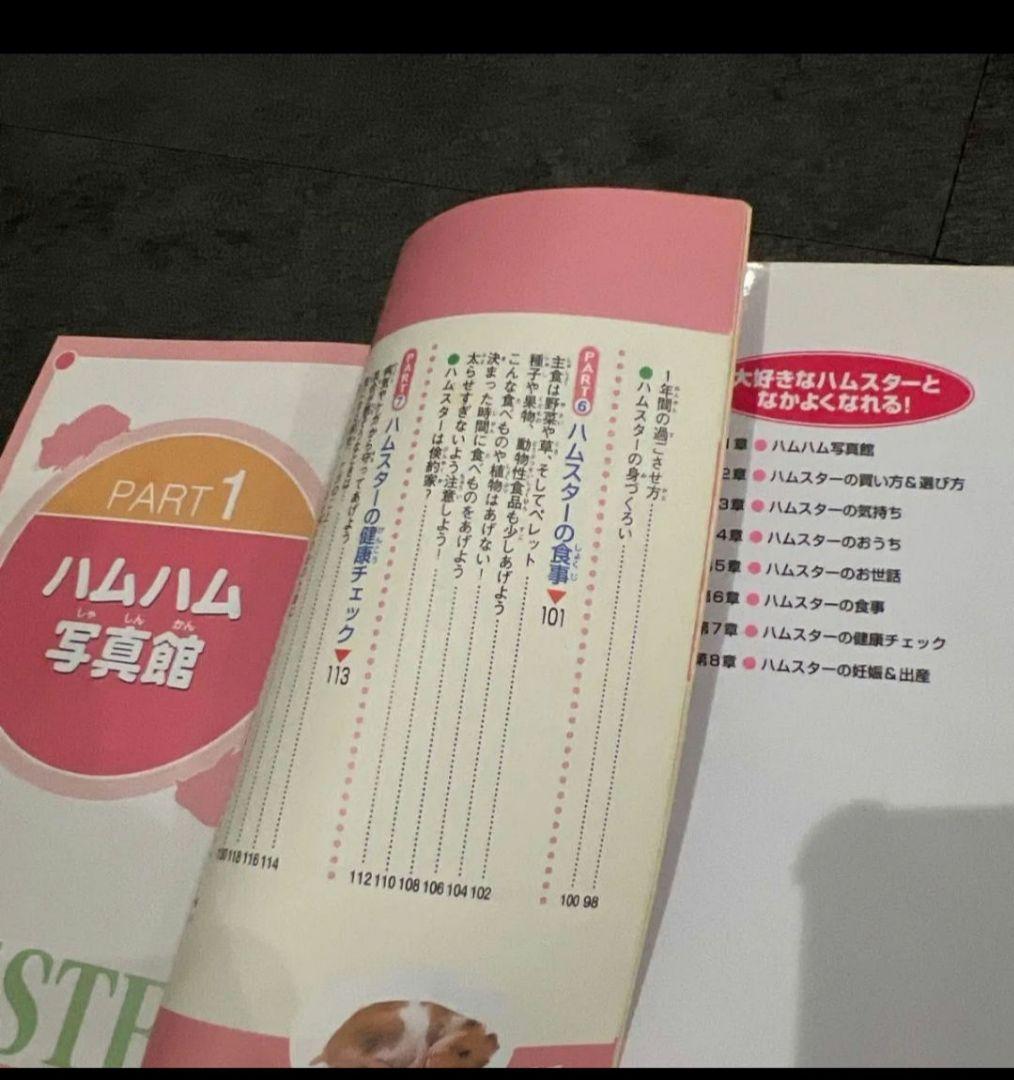 PART1
ハムハム
写真館
しゃ しん かん
STE
1年間の過ごさせ方 98
ハムスターの身づくろい 100
PART6 ハムスターの食事 101
主食は野菜や草、そしてペレット 102
種子や果物、動物性食品も少しあげよう 104
こんな食べものや植物はあげない! 106
決まった時間に食べものをあげよう 108
太らせすぎないよう注意しよう! 110
ハムスターは倹約家? 112
PART7 ハムスターの健康チェック 113
114
116
118
大好きなハムスターと
なかよくなれる!
1章 ハムハム写真館
2章 ハムスターの買い方&選び方
3章 ハムスターの気持ち
4章 ハムスターのおうち
5章 ハムスターのお世話
6章 ハムスターの食事
第7章 ハムスターの健康チェック
第8章 ハムスターの妊娠&出産